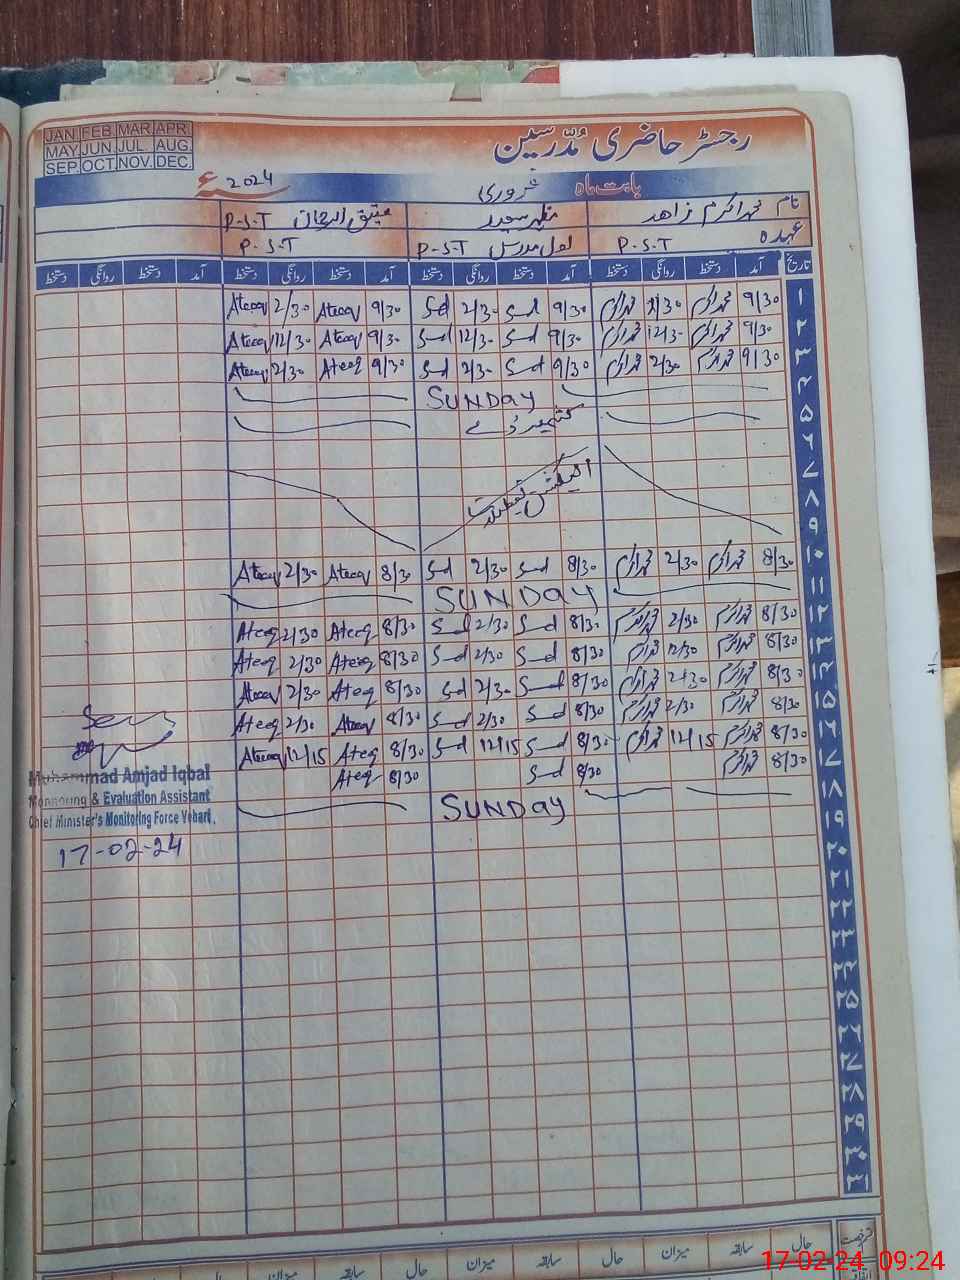 JAN. FEB. MAR. APR.
MAY. JUN. JUL. AUG.
SEP. OCT. NOV. DEC.
رجسٹر حاضری مُدّرسین
بابت ماہ فروری 2024 ء
نام محمد اکرم زاھد مظہر سعید عتیق الرحمان P.S.T
عہدہ P.S.T اول مدرس P.S.T P.S.T
تاریخ آمد دستخط روانگی دستخط آمد دستخط روانگی دستخط آمد دستخط روانگی دستخط آمد دستخط روانگی دستخط
۱ 9/30 محمد اکرم 2/30 محمد اکرم 9/30 Sd 2/30 Sd 9/30 Ateeq 2/30 Ateeq
۲ 9/30 محمد اکرم 12/30 محمد اکرم 9/30 Sd 12/30 Sd 9/30 Ateeq 12/30 Ateeq
۳ 9/30 محمد اکرم 2/30 محمد اکرم 9/30 Sd 2/30 Sd 9/30 Ateeq 2/30 Ateeq
۴ SUNDAY
۵ کشمیر ڈے
۶
۷ الیکشن تعطیلات
۸
۹
۱۰ 8/30 محمد اکرم 2/30 محمد اکرم 8/30 Sd 2/30 Sd 8/30 Ateeq 2/30 Ateeq
۱۱ SUNDAY
۱۲ 8/30 محمد اکرم 2/30 محمد اکرم 8/30 Sd 2/30 Sd 8/30 Ateeq 2/30 Ateeq
۱۳ 8/30 محمد اکرم 12/30 محمد اکرم 8/30 Sd 2/30 Sd 8/30 Ateeq 2/30 Ateeq
۱۴ 8/30 محمد اکرم 2/30 محمد اکرم 8/30 Sd 2/30 Sd 8/30 Ateeq 2/30 Ateeq
۱۵ 8/30 محمد اکرم 2/30 محمد اکرم 8/30 Sd 2/30 Sd 8/30 Ateeq 2/30 Ateeq
۱۶ 8/30 محمد اکرم 12/15 محمد اکرم 8/30 Sd 12/15 Sd 8/30 Ateeq 12/15 Ateeq
۱۷ 8/30 محمد اکرم 8/30 Sd 8/30 Ateeq
۱۸ SUNDAY
۱۹
۲۰
۲۱
۲۲
۲۳
۲۴
۲۵
۲۶
۲۷
۲۸
۲۹
۳۰
۳۱
Muhammad Amjad Iqbal
Monitoring & Evaluation Assistant
Chief Minister's Monitoring Force Vehari.
17-02-24
رخصت حال سابقہ میزان حال سابقہ میزان حال سابقہ میزان
اتفاقیہ
17-02-24 09:24